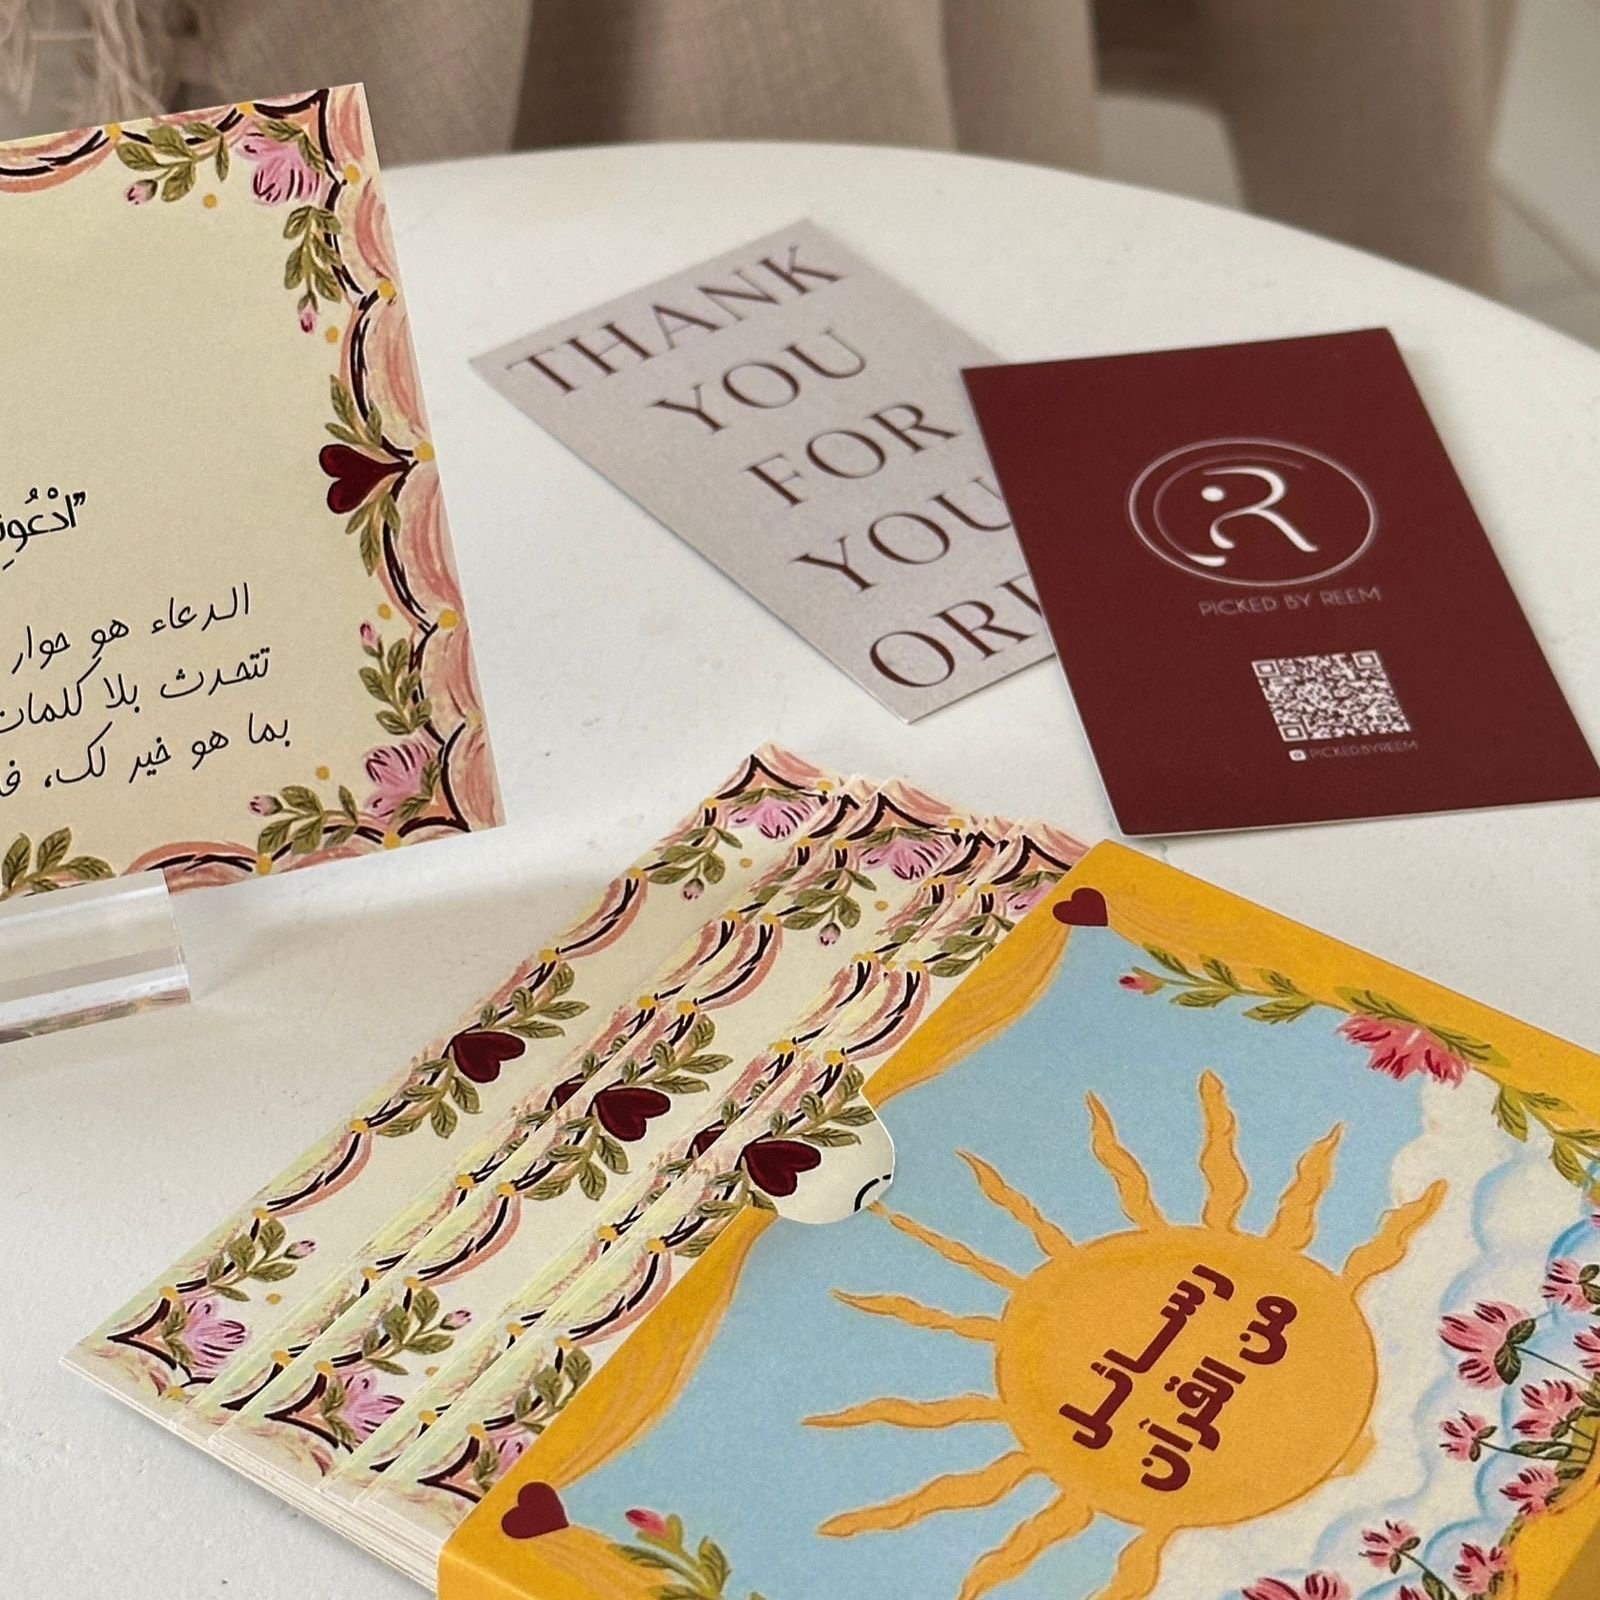 "ادْعُونِ
الدعاء هو حوار
تتحدث بلا كلمات
بما هو خير لك،
THANK
YOU
FOR
YOU
ORD
R
PICKED BY REEM
PICKEDBYREEM
رسائل
من القرآن